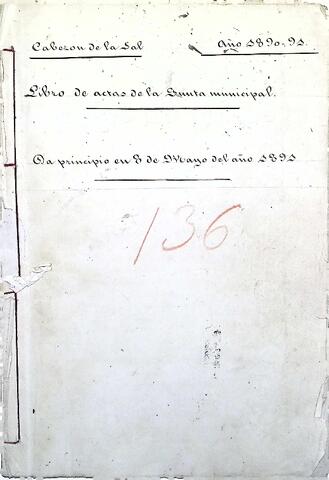 Cabezon de la Sal
Año 1890-91.
Libro de actas de la Junta municipal.
Da principio en 8 de Mayo del año 1891
136